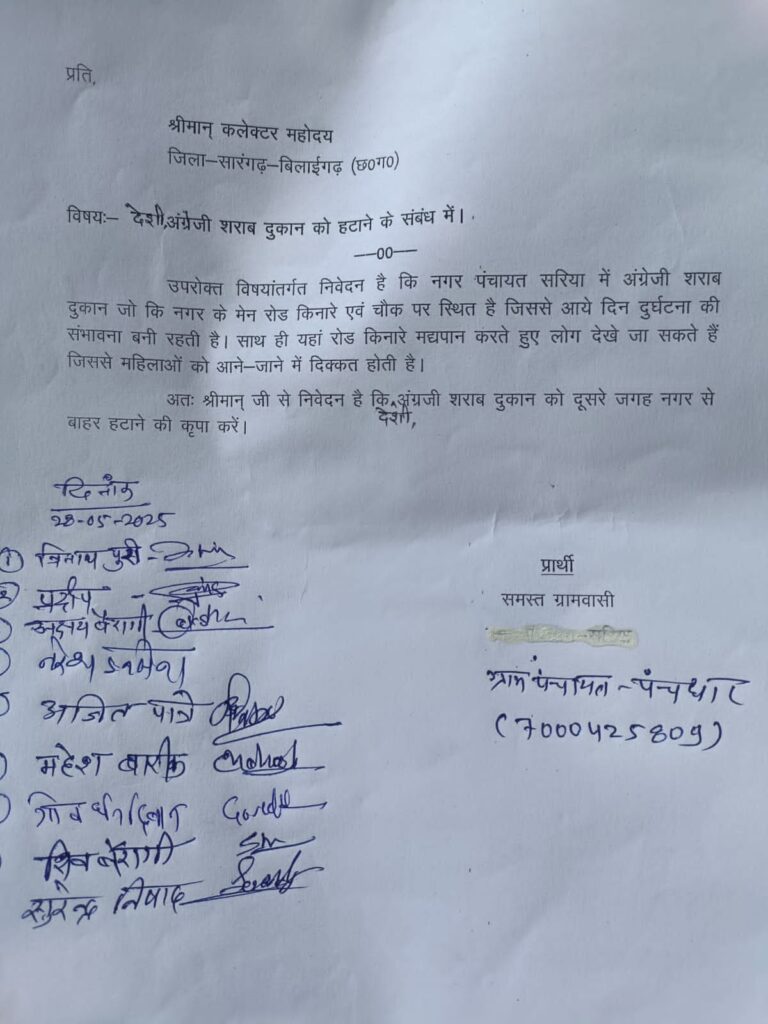 प्रति,
श्रीमान् कलेक्टर महोदय
जिला–सारंगढ़–बिलाईगढ़ (छ०ग०)
विषयः– देशी, अंग्रेजी शराब दुकान को हटाने के संबंध में।
—00—
उपरोक्त विषयांतर्गत निवेदन है कि नगर पंचायत सरिया में अंग्रेजी शराब
दुकान जो कि नगर के मेन रोड किनारे एवं चौक पर स्थित है जिससे आये दिन दुर्घटना की
संभावना बनी रहती है। साथ ही यहां रोड किनारे मद्यपान करते हुए लोग देखे जा सकते हैं
जिससे महिलाओं को आने–जाने में दिक्कत होती है।
अतः श्रीमान् जी से निवेदन है कि देशी, अंग्रजी शराब दुकान को दूसरे जगह नगर से
बाहर हटाने की कृपा करें।
दिनांक
28-05-2025
① त्रिनाथ पुरी -
② प्रदीप -
अक्षय बैरागी
नरेश
अजित पात्रे
महेश बारीक
शिव बैरागी
सुरेन्द्र निषाद
प्रार्थी
समस्त ग्रामवासी
ग्राम पंचायत - पंचधार
(7000425809)